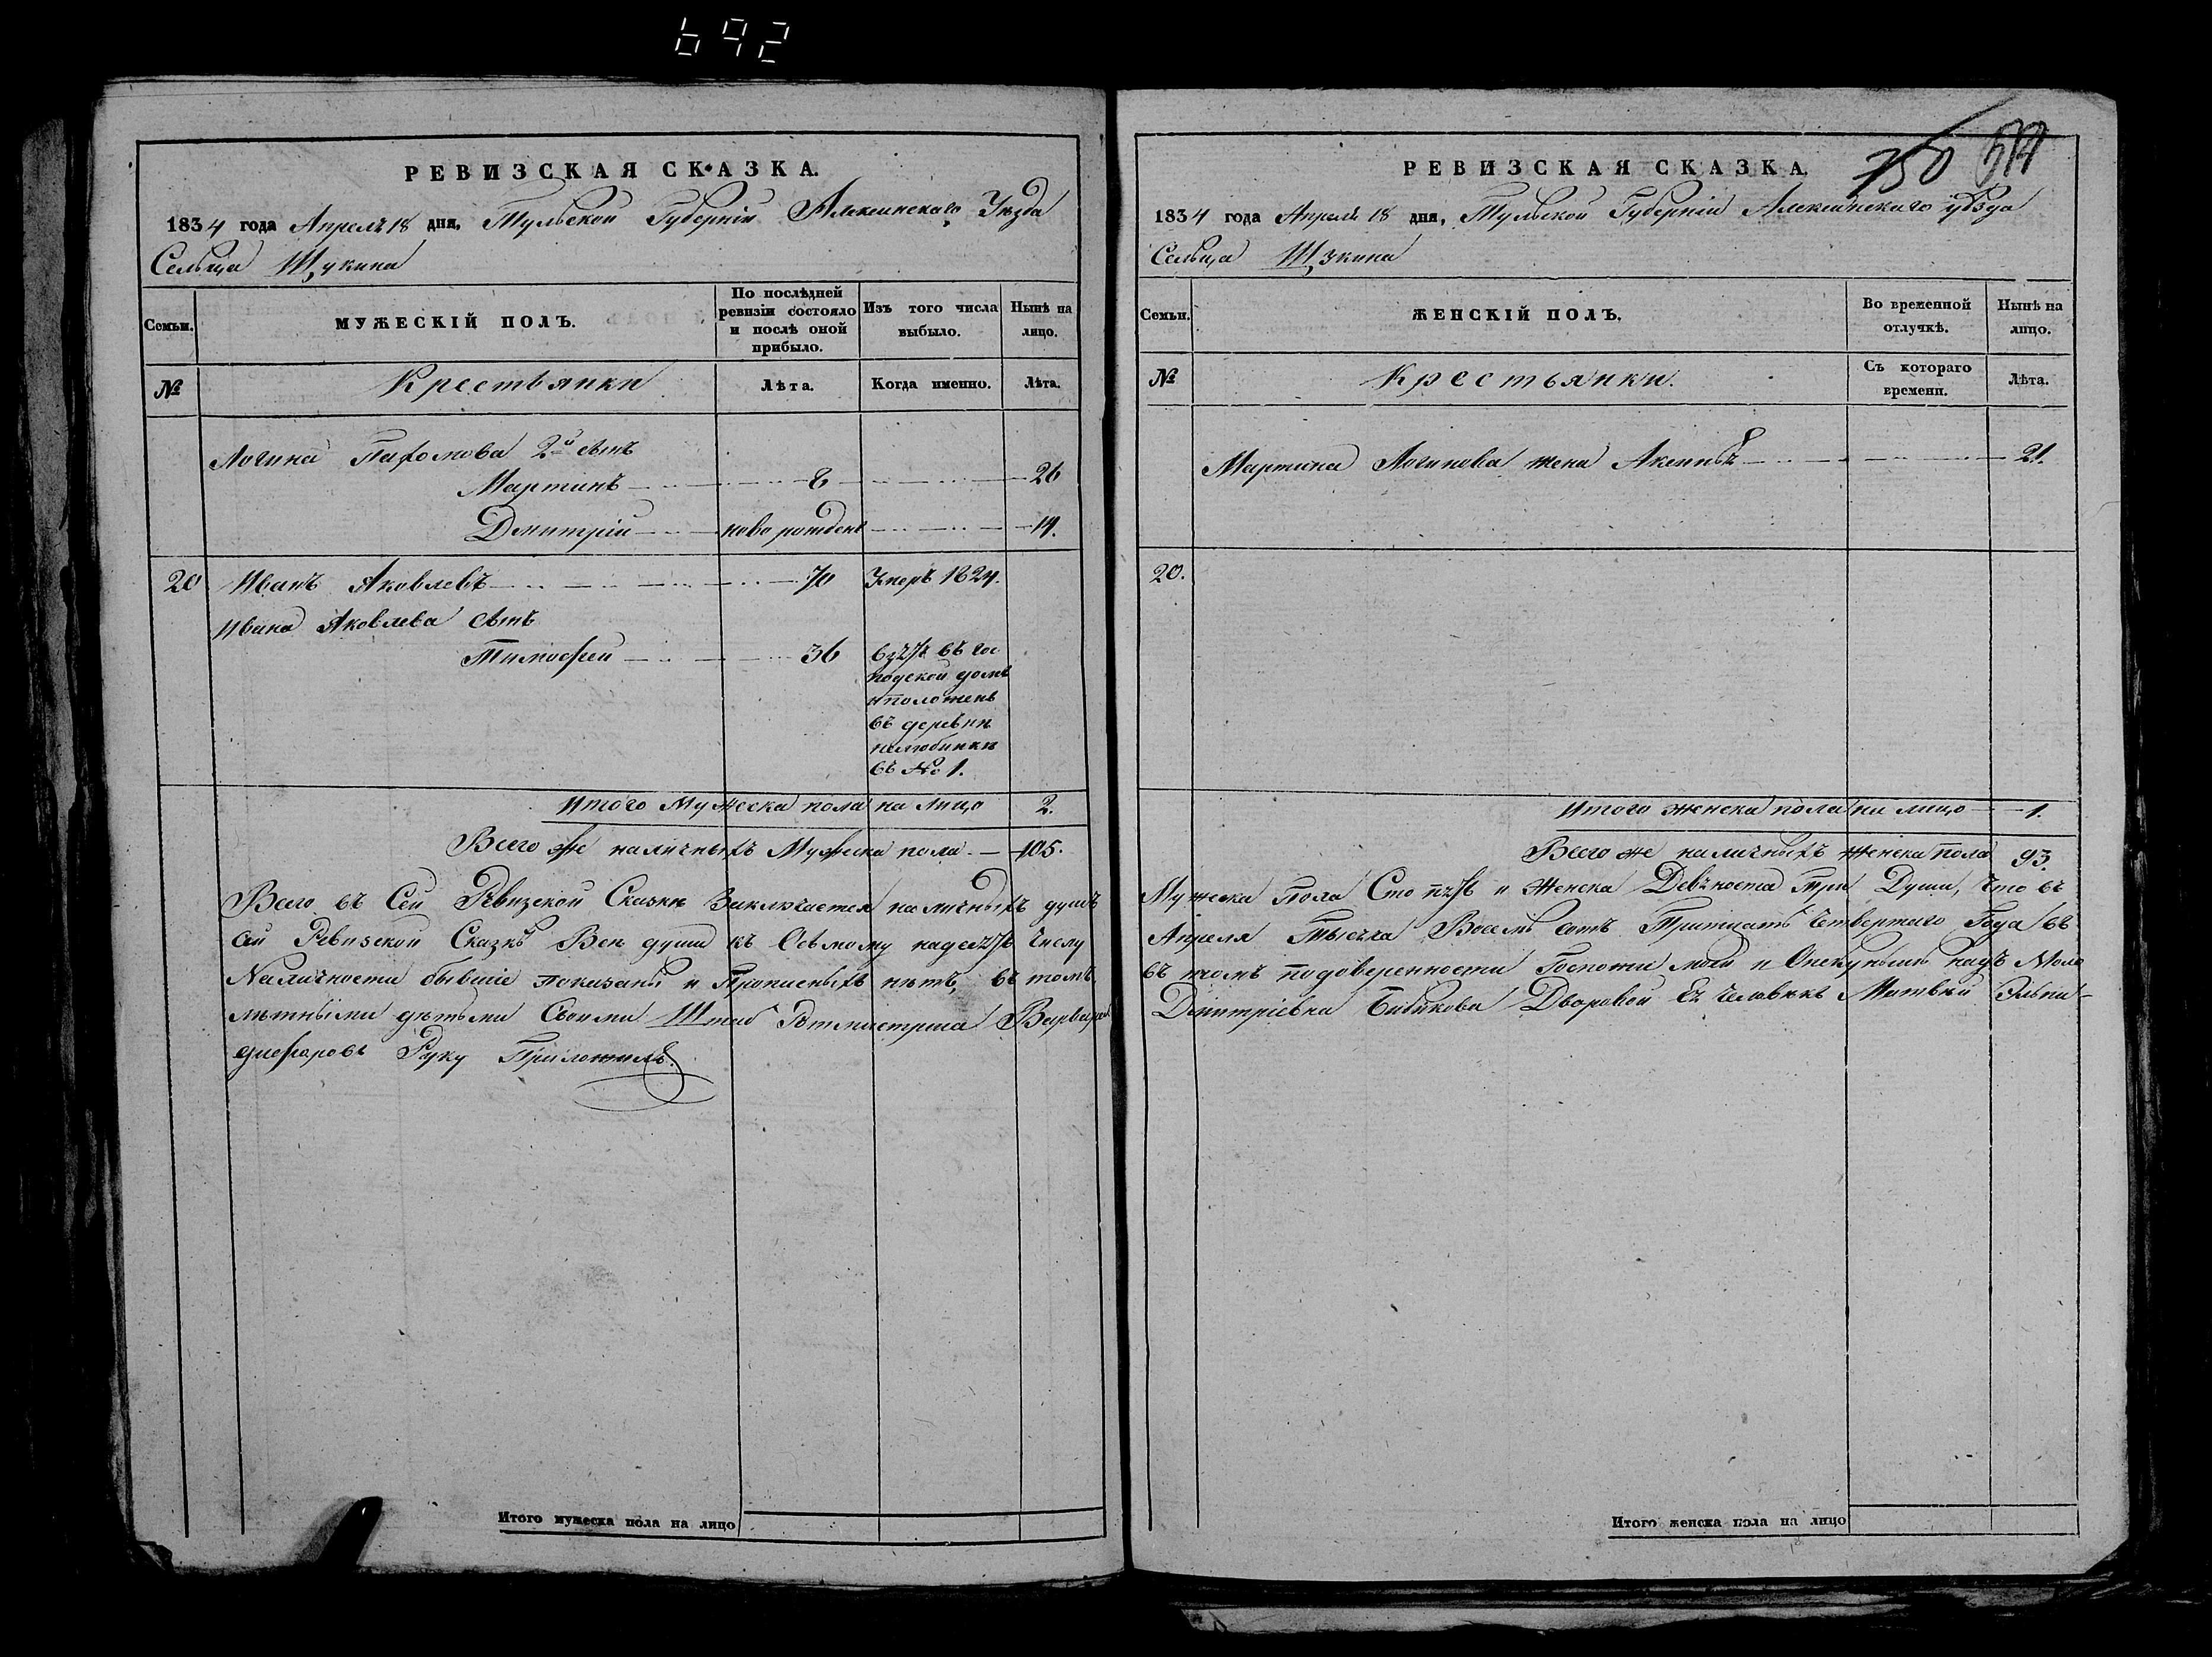 692
РЕВИЗСКАЯ СКАЗКА.
1834 года Апреля 18 дня, Тульской Губернiи Алексинскаго Уезда
Сельца Щукина
Семьи.
МУЖЕСКIЙ ПОЛЪ.
По послѣдней ревизiи состояло и послѣ оной прибыло.
Изъ того числа выбыло.
Нынѣ на лицо.
№
Крестьянки
Лѣта.
Когда именно.
Лѣта.
Логина Пафомова 2й сынъ
Мартинъ 8 26
Дмитрiй новорожденъ 14.
20 Иванъ Яковлевъ 70 Умеръ 1824.
Ивана Яковлева сынъ
Тимофей 36 взятъ въ гос
подской домъ
и положенъ
въ деревни
въ № 1.
Итого Мужеска пола на лицо 2.
Всего же наличныхъ Мужеска пола 105.
Всего въ Сей Ревизской Сказки Заключается наличныхъ душъ
сей Ревизской Сказкѣ Все души къ Осьмому надесять числу
Наличности бывшiе показаны и Прописныхъ нѣтъ, въ томъ
лѣтными дѣтьми Своими Штабъ Ротмистрша Варвара
дифоровъ Руку Приложилъ.
Итого мужеска пола на лицо
РЕВИЗСКАЯ СКАЗКА.
750
1834 года Апреля 18 дня, Тульской Губернiи Алексинскаго уѣзда
Сельца Щукина
Семьи.
ЖЕНСКIЙ ПОЛЪ.
Во временной отлучкѣ.
Нынѣ на лицо.
№
Крестьянки.
Съ котораго времени.
Лѣта.
Мартина Логинова жена Аксинья 21.
20.
Итого женска пола на лицо 1.
Всего же наличныхъ женска пола 93.
Мужеска Пола Сто пять и Женска Девеноста три Души, что въ
Апреля Тысеча Восемь сотъ Тритцать Четвертаго Года въ
въ томъ подоверенности Госпожи моей и Опекунши надъ Мало
Дмитрiевна Бибикова Дворовой Ея человѣкъ Матвей Эльпи-
Итого женска пола на лицо